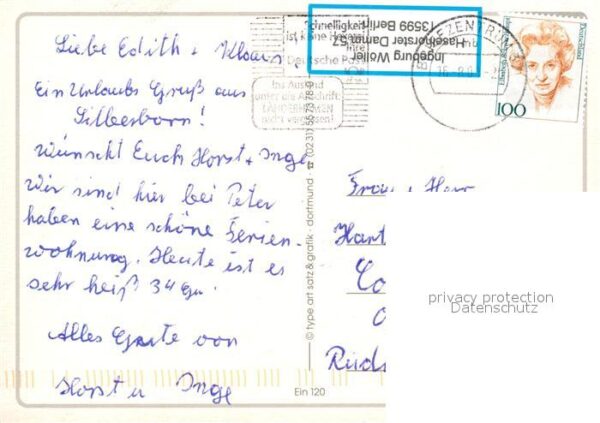 Liebe Edith + Klaus!
Ein Urlaubs Gruß aus
Silberborn!
wünscht Euch Horst + Inge
Wir sind hier bei Peter
haben eine schöne Ferien-
wohnung. Heute ist es
sehr heiß 34 Gr.
Alles Gute von
Horst u Inge
Schnelligkeit
ist keine Hexerei
Deutsche Post
Ins Ausland
unter die Anschrift
nicht vergessen!
Ingeburg Wöller
Haselhorster Damm 57
13599 Berlin
BRIEFZENTRUM
100
Deutschland
© type art satz & grafik · dortmund · ☎ (0231) 55 73 78-0
Frau + Herr
Hart
Co
Ein 120
privacy protection
Datenschutz